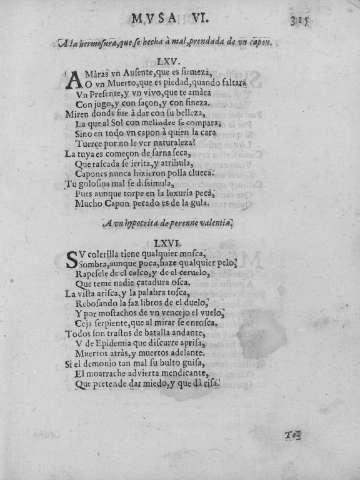 MVSA VI.
315
A la hermosura, que se hecha à mal, prendada de vn capon.
LXV.
AMàras vn Ausente, que es firmeza,
O vn Muerto, que es piedad, quando faltara
Vn Presente, y vn vivo, que te amàra
Con jugo, y con saçon, y con fineza.
Miren donde fue à dar con su belleza,
La que al Sol con melindre se compara;
Sino en todo vn capon à quien la cara
Tuerçe por no le ver naturaleza!
La tuya es começon de sarna seca,
Que rascada se irrita, y atribula,
Capones nunca hizieron polla clueca.
Tu golosina mal se disimula,
Pues aunque torpe en la luxuria peca,
Mucho Capon pecado es de la gula.
A vn hypocrita de perenne valentia.
LXVI.
SV colerilla tiene qualquier mosca,
Sombra, aunque poca, haze qualquier pelo;
Rapesele de el casco, y de el ceruelo,
Que teme nadie catadura osca.
La vista arisca, y la palabra tosca,
Rebosando la faz libros de el duelo,
Y por mostachos de vn vencejo el vuelo,
Ceja serpiente, que al mirar se enrosca.
Todos son trastos de batalla andante,
V de Epidemia que discurre aprisa,
Muertos atràs, y muertos adelante.
Si el demonio tan mal su bulto guisa,
El moarrache advierta mendicante,
Que pretende dar miedo, y que dà risa.